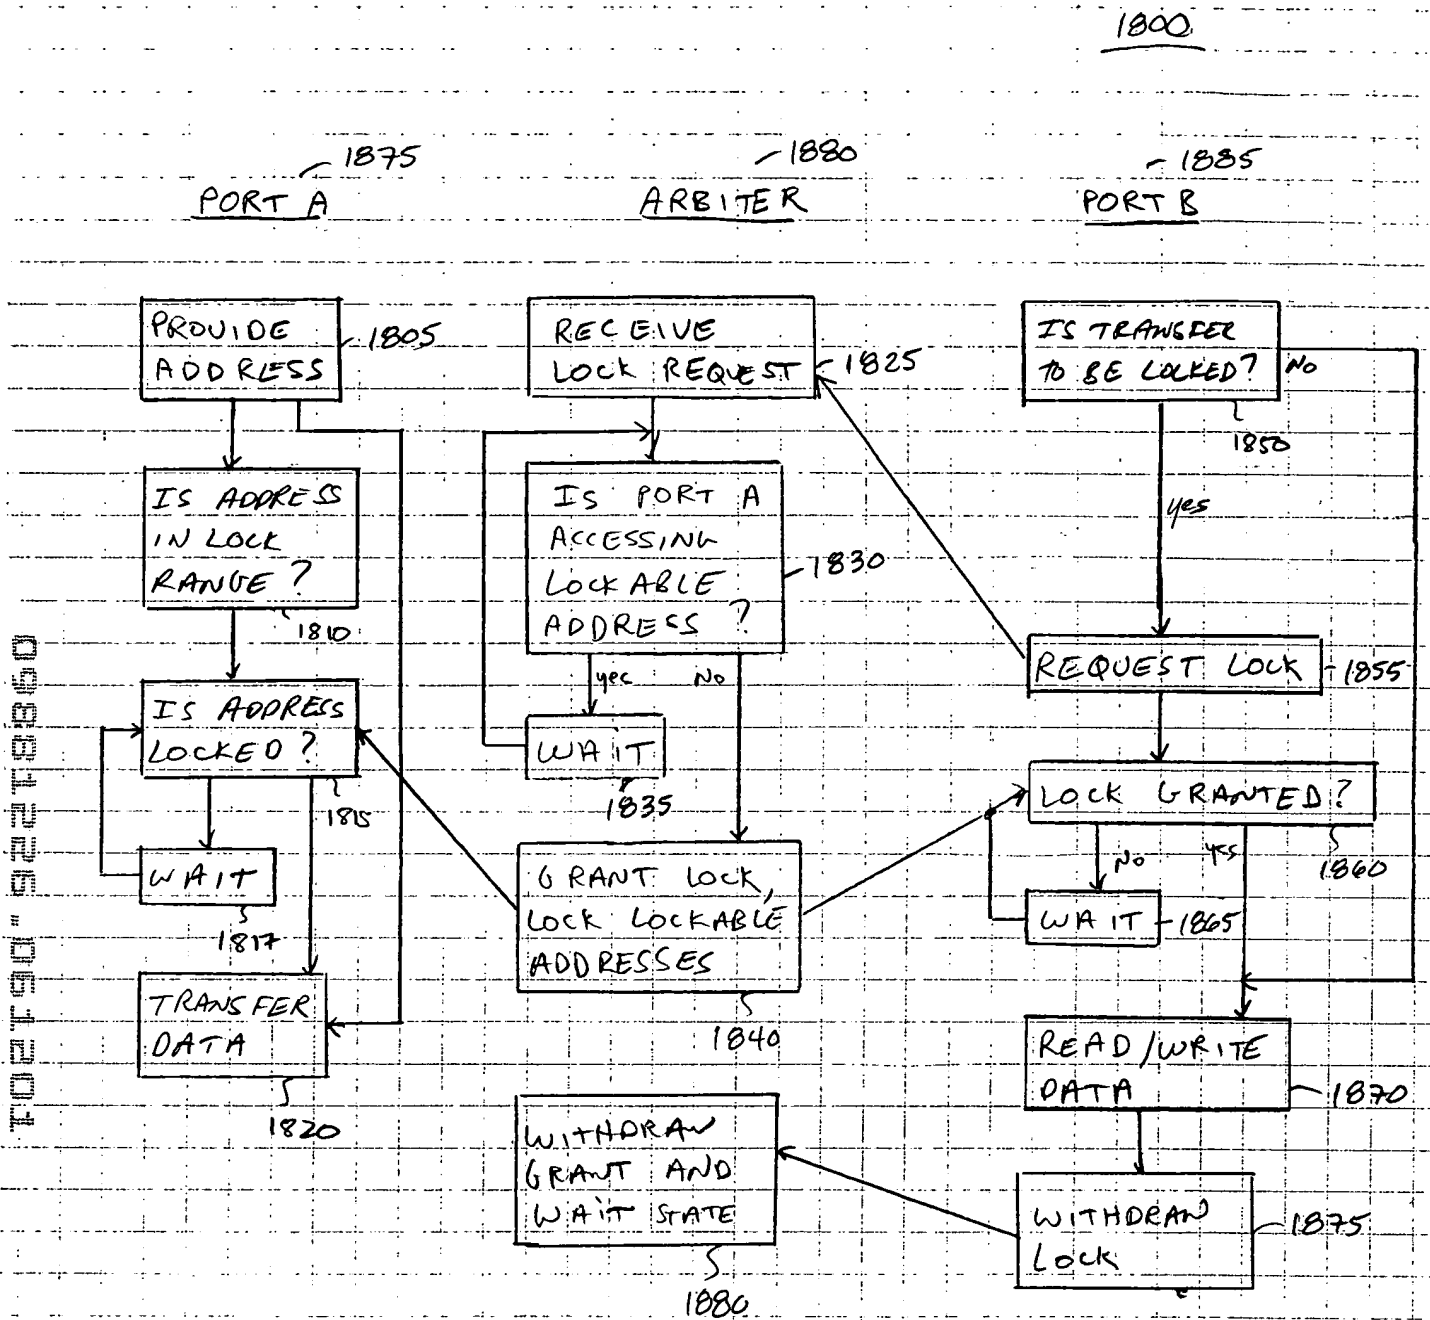 1800
1875
PORT A
1880
ARBITER
1885
PORT B
PROVIDE
ADDRESS
1805
IS ADDRESS
IN LOCK
RANGE?
1810
IS ADDRESS
LOCKED?
1815
WAIT
1817
TRANSFER
DATA
1820
RECEIVE
LOCK REQUEST
1825
IS PORT A
ACCESSING
LOCKABLE
ADDRESS?
1830
yes
No
WAIT
1835
GRANT LOCK,
LOCK LOCKABLE
ADDRESSES
1840
WITHDRAW
GRANT AND
WAIT STATE
1880
IS TRANSFER
TO BE LOCKED?
No
1850
yes
REQUEST LOCK
1855
LOCK GRANTED?
1860
No
yes
WAIT
1865
READ/WRITE
DATA
1870
WITHDRAW
LOCK
1875
09881226.061201